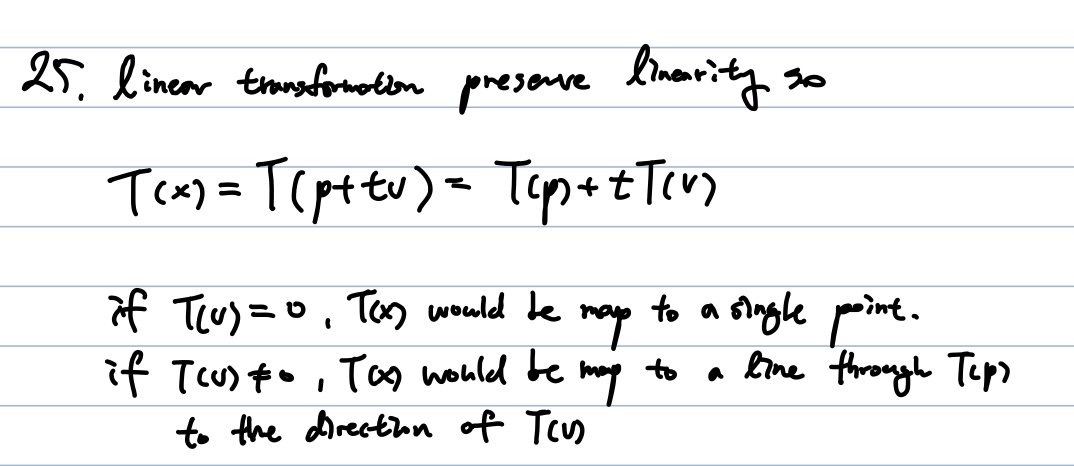 25. linear transformation preserve linearity so
T(x) = T(p+tv) = T(p) + tT(v)
if T(v) = 0, T(x) would be map to a single point.
if T(v) ≠ 0, T(x) would be map to a line through T(p)
to the direction of T(v)